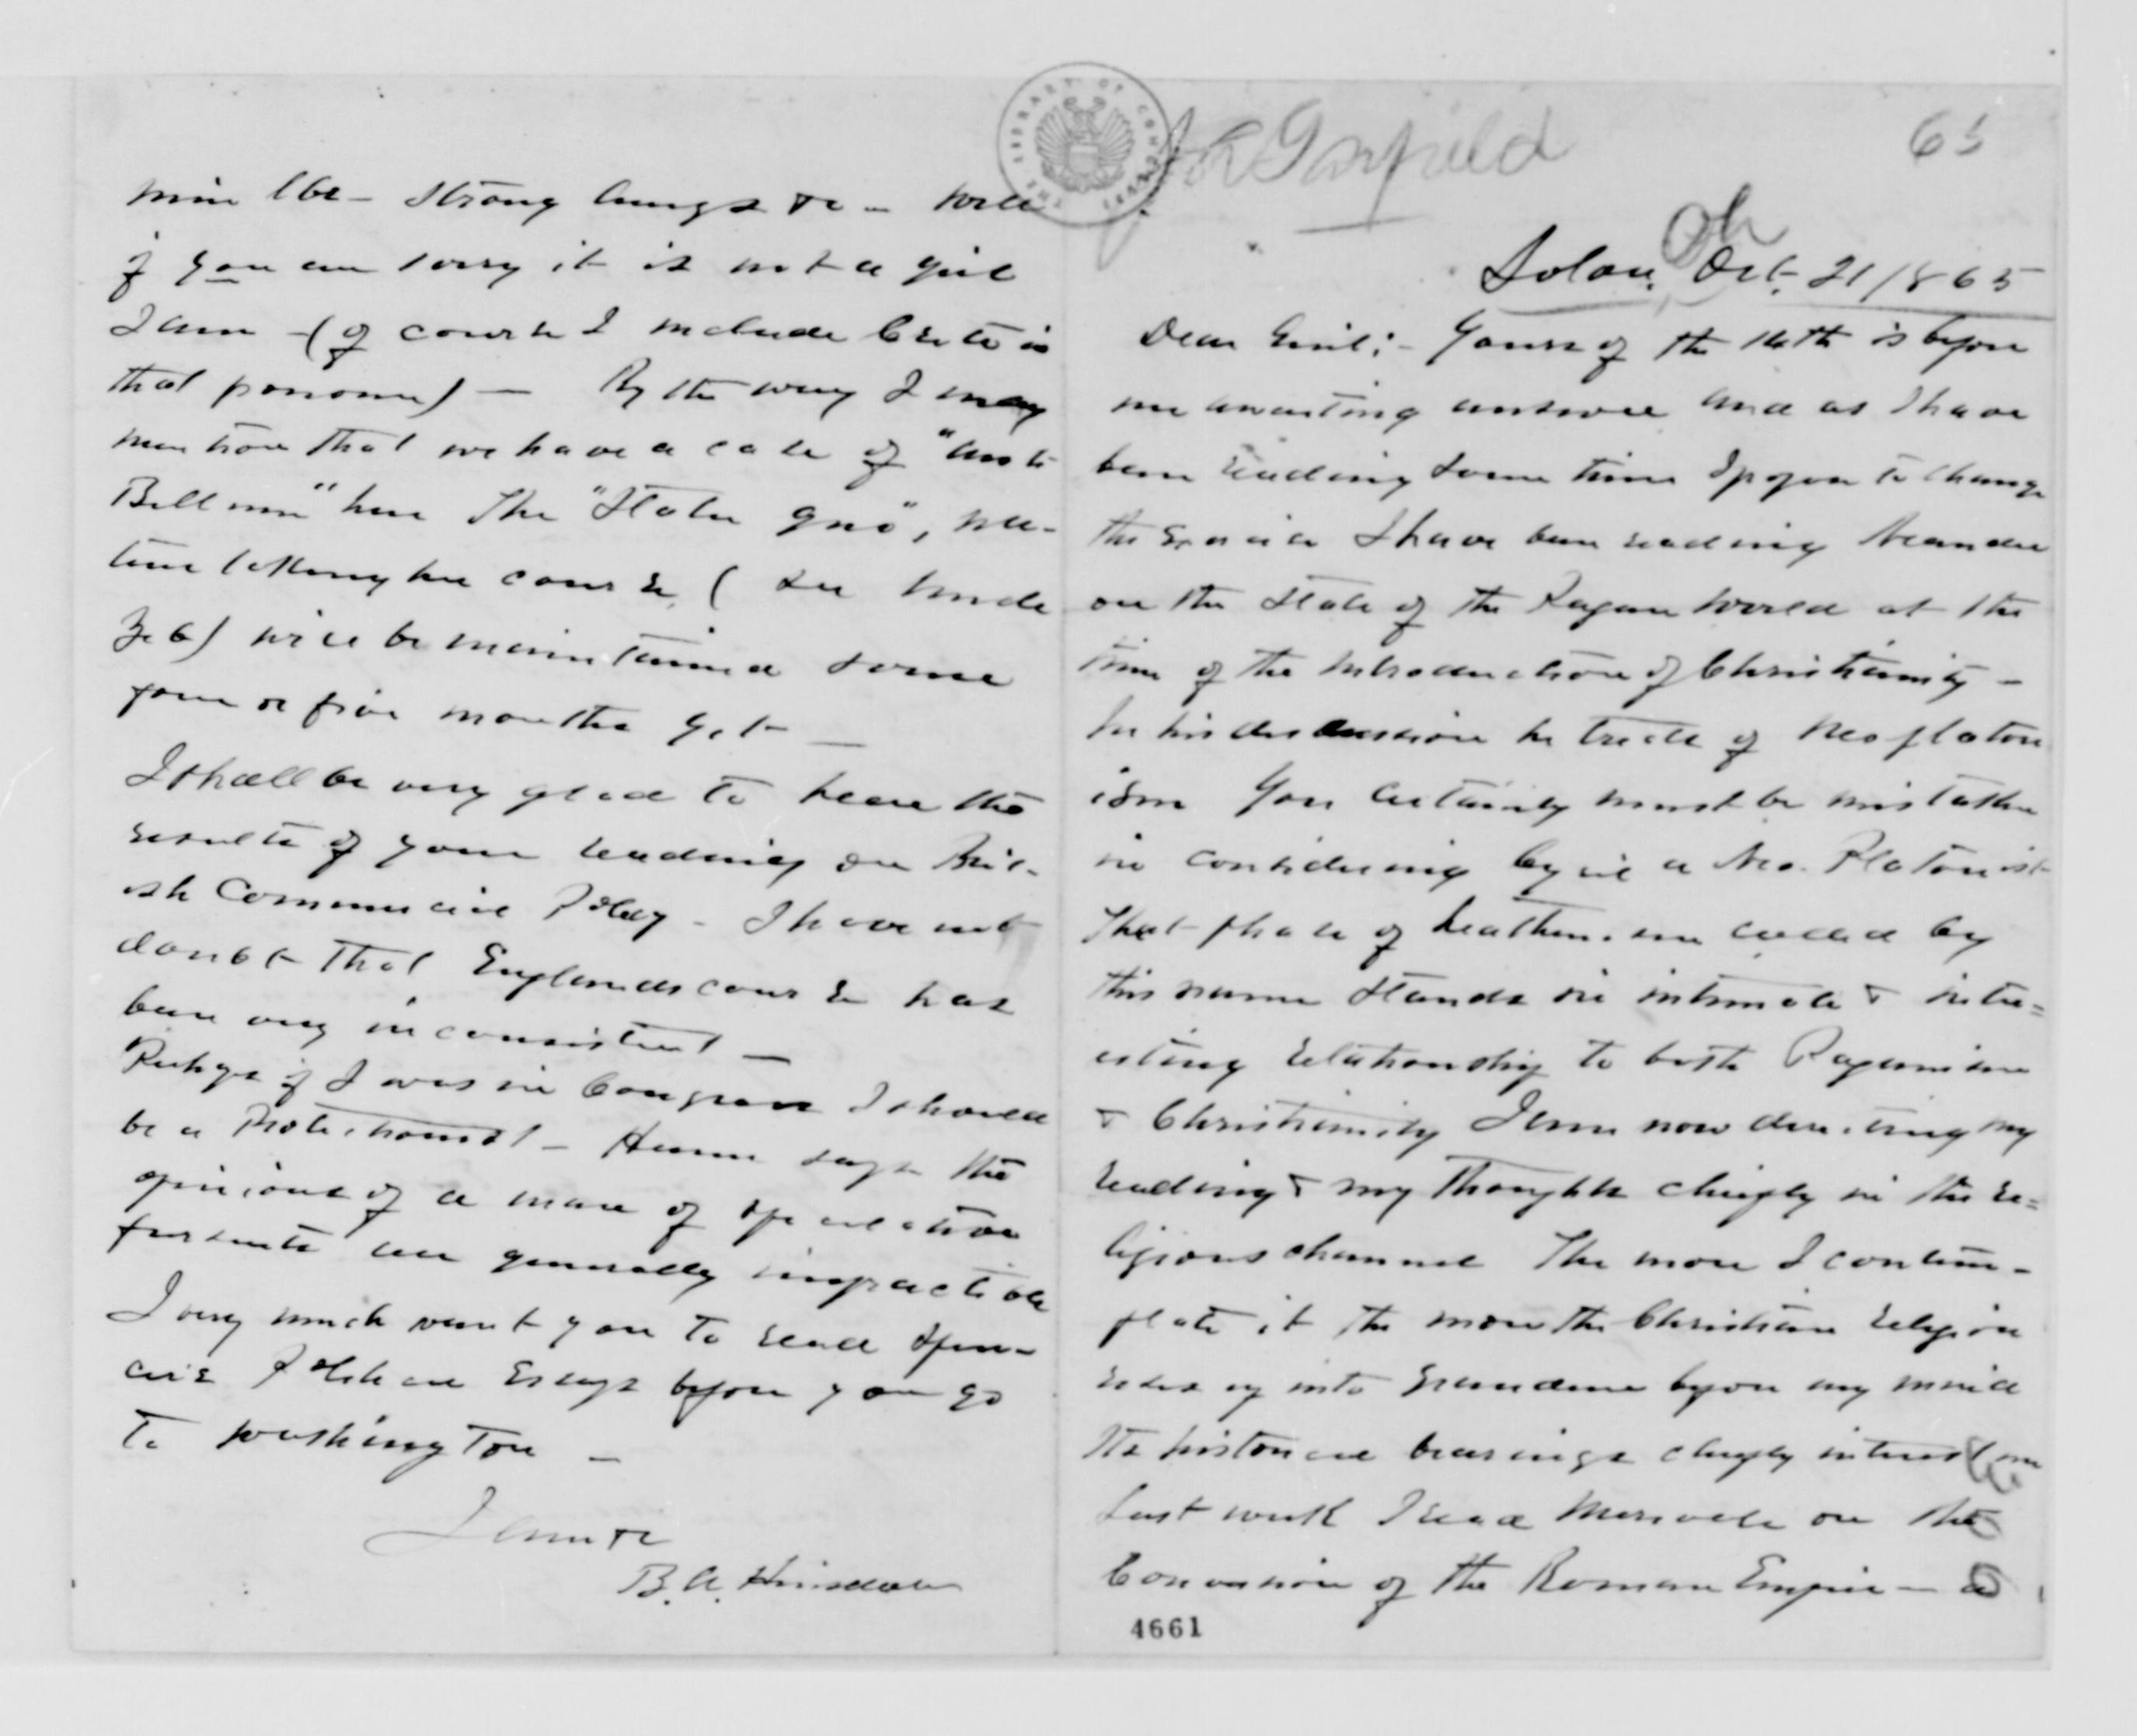 J A Garfield
65
Oh
Solon, Oct. 21/865
Dear Genl:- Yours of the 16th is before
me awaiting answer and as I have
been reading some time I pause to change
the exercise I have been reading Neander
on the State of the Pagan World at the
time of the introduction of Christianity -
In his discussion he treats of Neoplaton
ism You certainly must be mistaken
in considering Cyril a Neo-Platonist
That phase of heathenism called by
this name stands in intimate & inter=
esting relationship to both Paganism
& Christianity I am now directing my
reading & my thoughts chiefly in the re=
ligious channel The more I contem-
plate it the more the Christian religion
rises up into grandeur before my mind
Its historical bearings chiefly interest me
Last week I read Merivale on the
Conversion of the Roman Empire - a
4661
nine lbs - strong lungs &c - Well
if you are sorry it is not a girl
I am - (of course I include Crete in
that pronoun) - By the way I may
mention that we have a case of "
Bellum" here The "Statu quo", na-
ture taking her course, (see Uncle
Zeb) will be maintained some
four or five months yet -
I shall be very glad to hear the
results of your reading on Brit-
ish Commercial Policy - I have not
doubt that Englands course has
been very inconsistent -
Perhaps if I was in Congress I should
be a Protectionist - Hume says the
opinions of a man of speculative
pursuits are generally impracticable
I very much want you to read Spen-
cer's Political Essays before you go
to Washington -
I am &c
B. A. Hinsdale